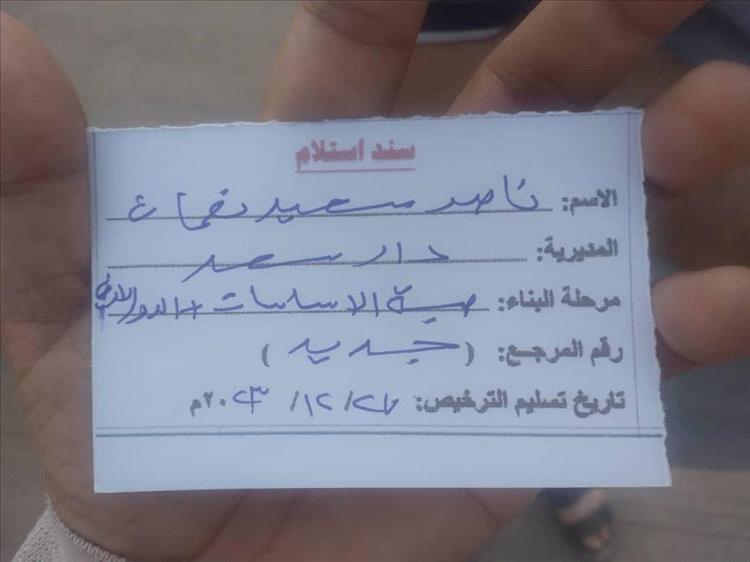 سند استلام
الاسم: ناصر سعيد نعمان
المديرية: دار سعد
مرحلة البناء: صبة الاساسات + الدور
رقم المرجع: ( جديد )
تاريخ تسليم الترخيص: ٢٧/ ١٢/ ٢٠٢٣م